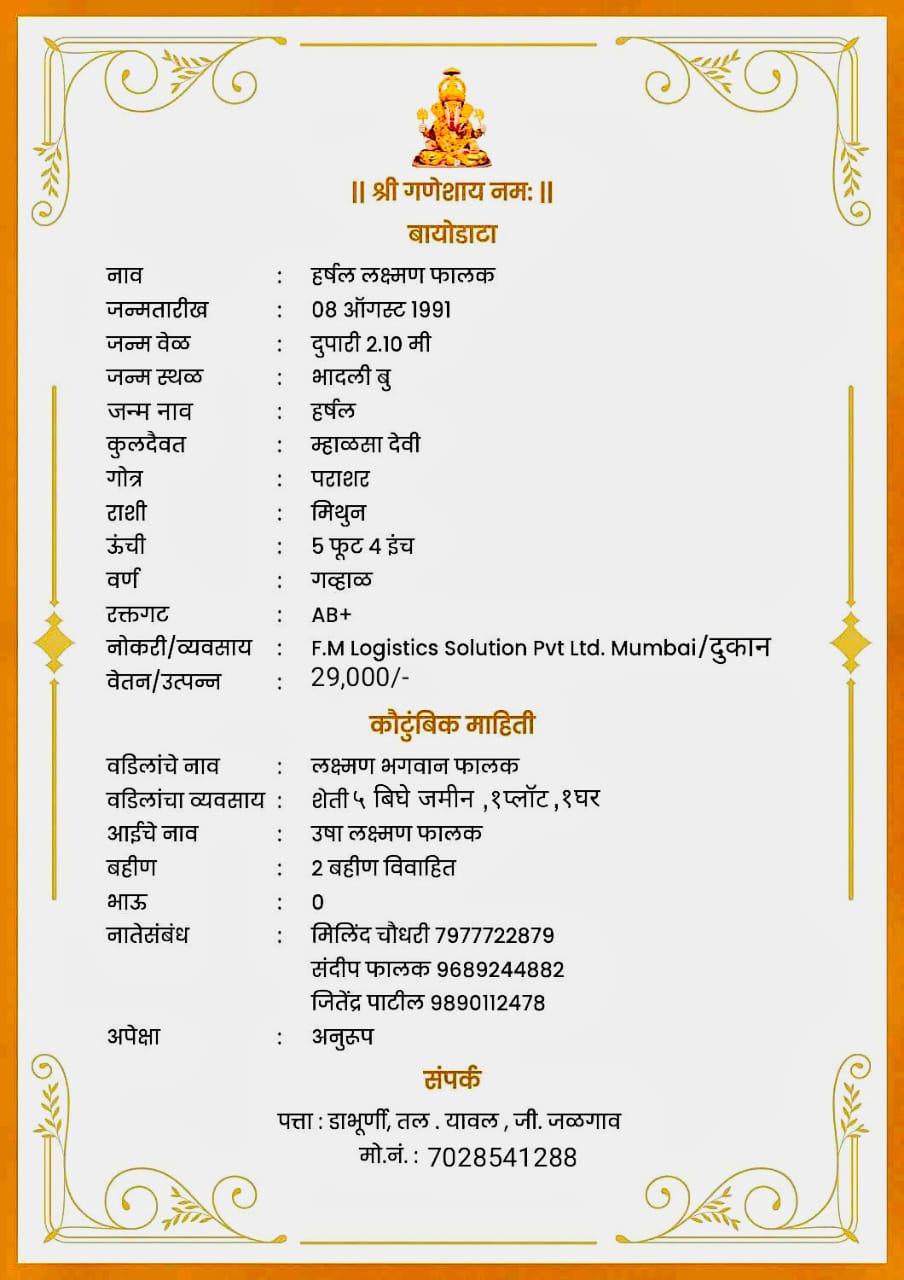 || श्री गणेशाय नमः ||
बायोडाटा
नाव : हर्षल लक्ष्मण फालक
जन्मतारीख : 08 ऑगस्ट 1991
जन्म वेळ : दुपारी 2.10 मी
जन्म स्थळ : भादली बु
जन्म नाव : हर्षल
कुलदैवत : म्हाळसा देवी
गोत्र : पराशर
राशी : मिथुन
ऊंची : 5 फूट 4 इंच
वर्ण : गव्हाळ
रक्तगट : AB+
नोकरी/व्यवसाय : F.M Logistics Solution Pvt Ltd. Mumbai/दुकान
वेतन/उत्पन्न : 29,000/-
कौटुंबिक माहिती
वडिलांचे नाव : लक्ष्मण भगवान फालक
वडिलांचा व्यवसाय : शेती ५ बिघे जमीन ,१प्लॉट ,१घर
आईचे नाव : उषा लक्ष्मण फालक
बहीण : 2 बहीण विवाहित
भाऊ : 0
नातेसंबंध : मिलिंद चौधरी 7977722879
संदीप फालक 9689244882
जितेंद्र पाटील 9890112478
अपेक्षा : अनुरूप
संपर्क
पत्ता : डाभूर्णी, तल . यावल , जी. जळगाव
मो.नं. : 7028541288